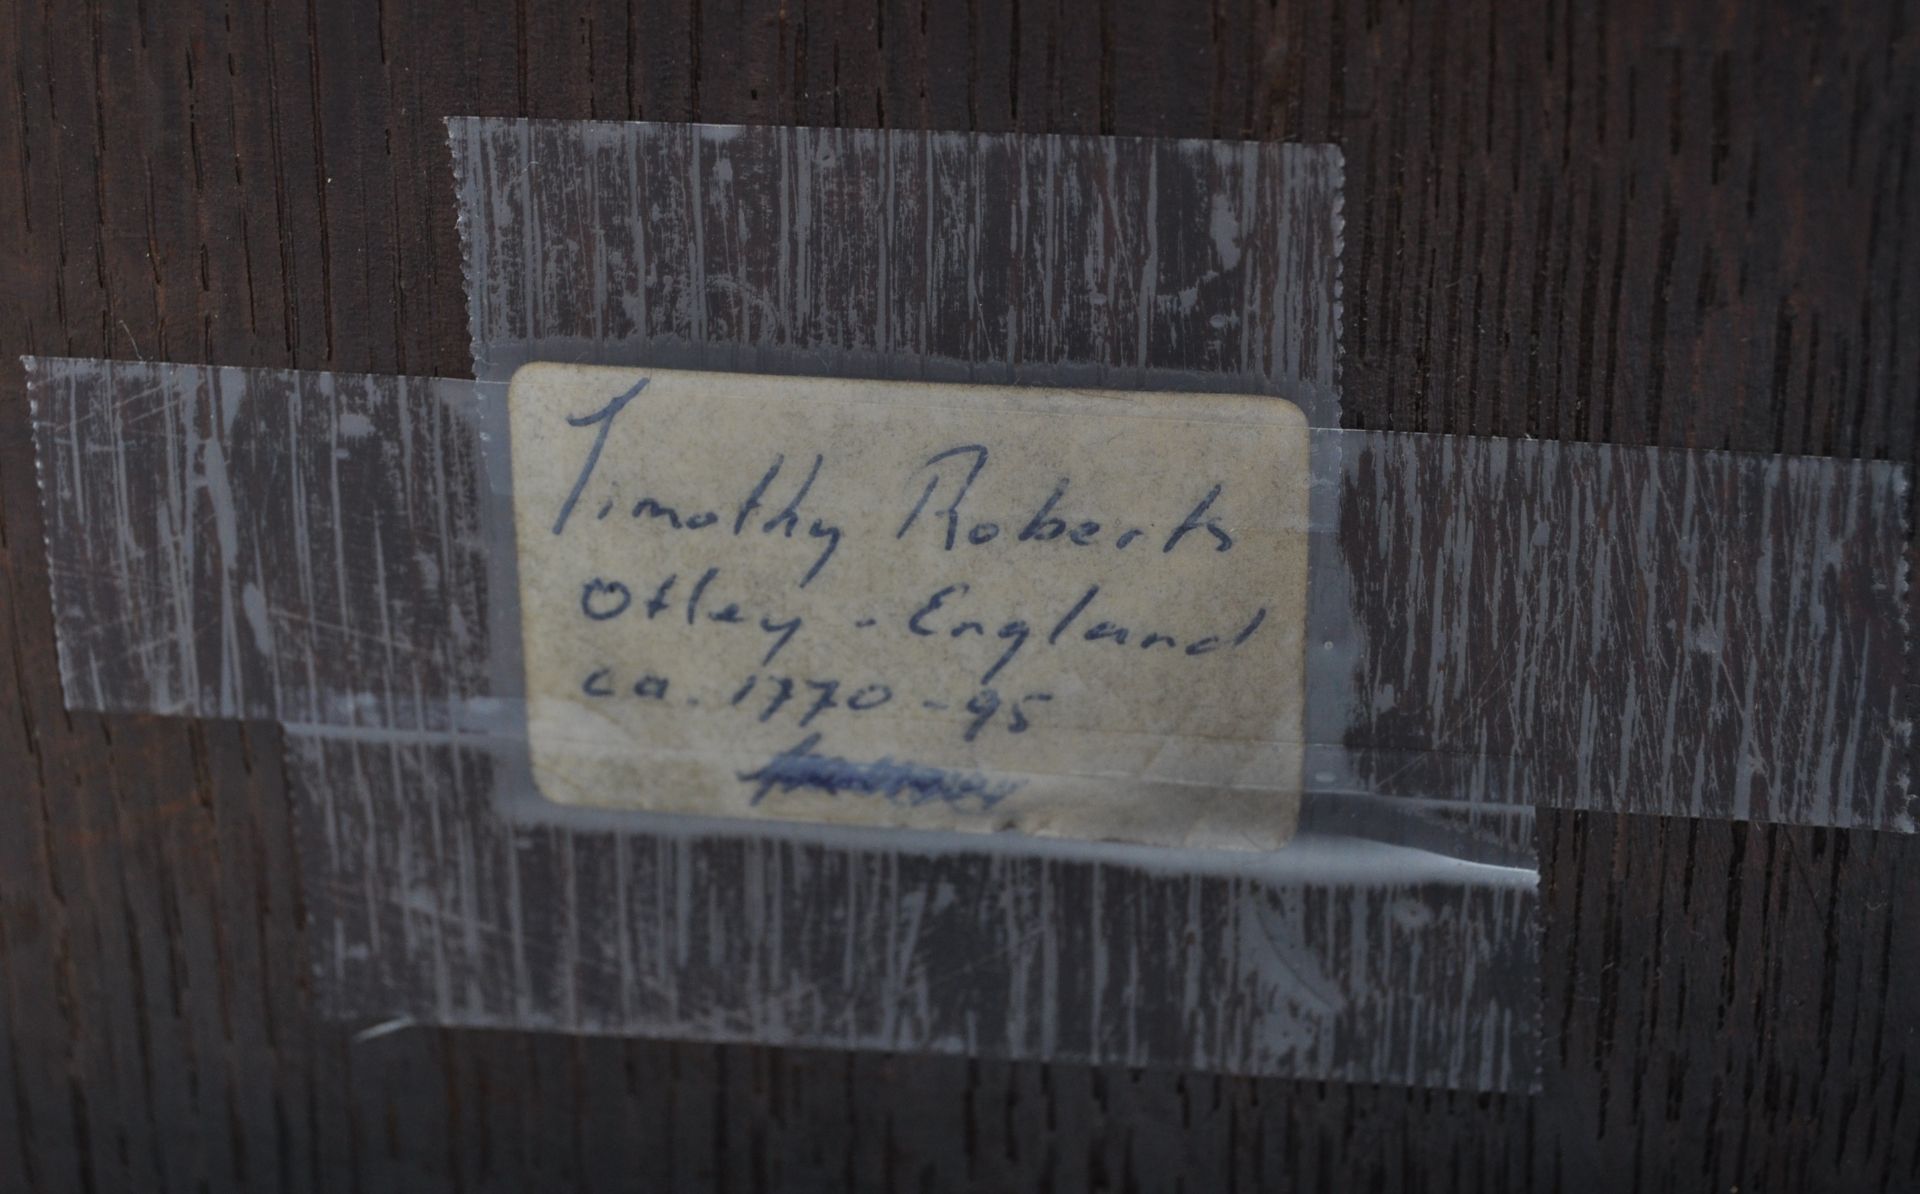 Timothy Roberts
Otley - England
ca. 1770 - 95